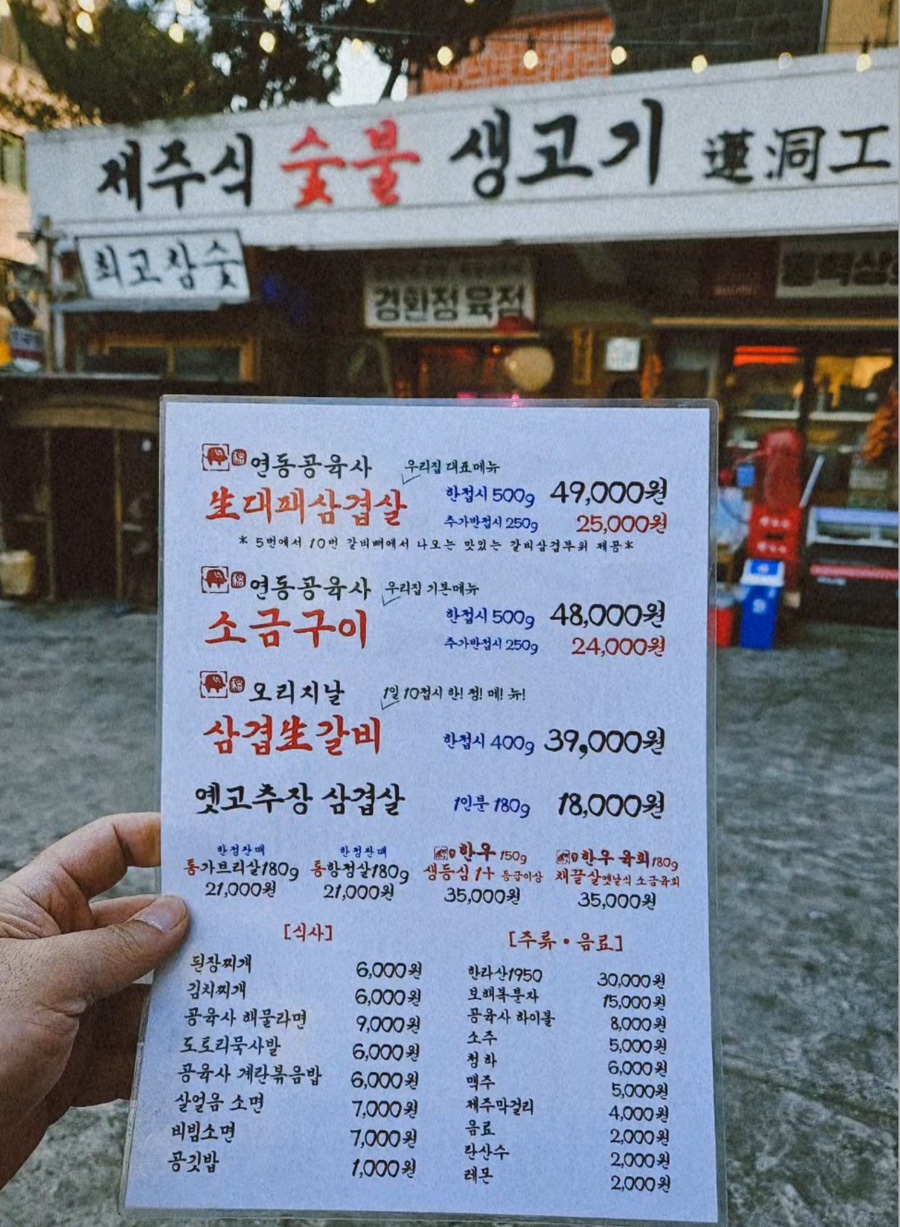 제주식 숯불 생고기 蓮洞工
최고참숯
경환정육점
연동공육사 우리집 대표메뉴
生대패삼겹살 한접시 500g 49,000원
추가반접시 250g 25,000원
* 5번에서 10번 갈비뼈에서 나오는 맛있는 갈비삼겹부위 제공*
연동공육사 우리집 기본메뉴
소금구이 한접시 500g 48,000원
추가반접시 250g 24,000원
오리지날 1일 10접시 한! 정! 메! 뉴!
삼겹生갈비 한접시 400g 39,000원
옛고추장 삼겹살 1인분 180g 18,000원
한정판매 한정판매 한우 150g 한우 육회 180g
통가브리살180g 통항정살180g 생등심 1+ 등급이상 채끝살옛날식 소금육회
21,000원 21,000원 35,000원 35,000원
[식사]
된장찌개 6,000원
김치찌개 6,000원
공육사 해물라면 9,000원
도토리묵사발 6,000원
공육사 계란볶음밥 6,000원
살얼음 소면 7,000원
비빔소면 7,000원
공깃밥 1,000원
[주류•음료]
한라산1950 30,000원
보해복분자 15,000원
공육사 하이볼 8,000원
소주 5,000원
청하 6,000원
맥주 5,000원
제주막걸리 4,000원
음료 2,000원
탄산수 2,000원
레몬 2,000원